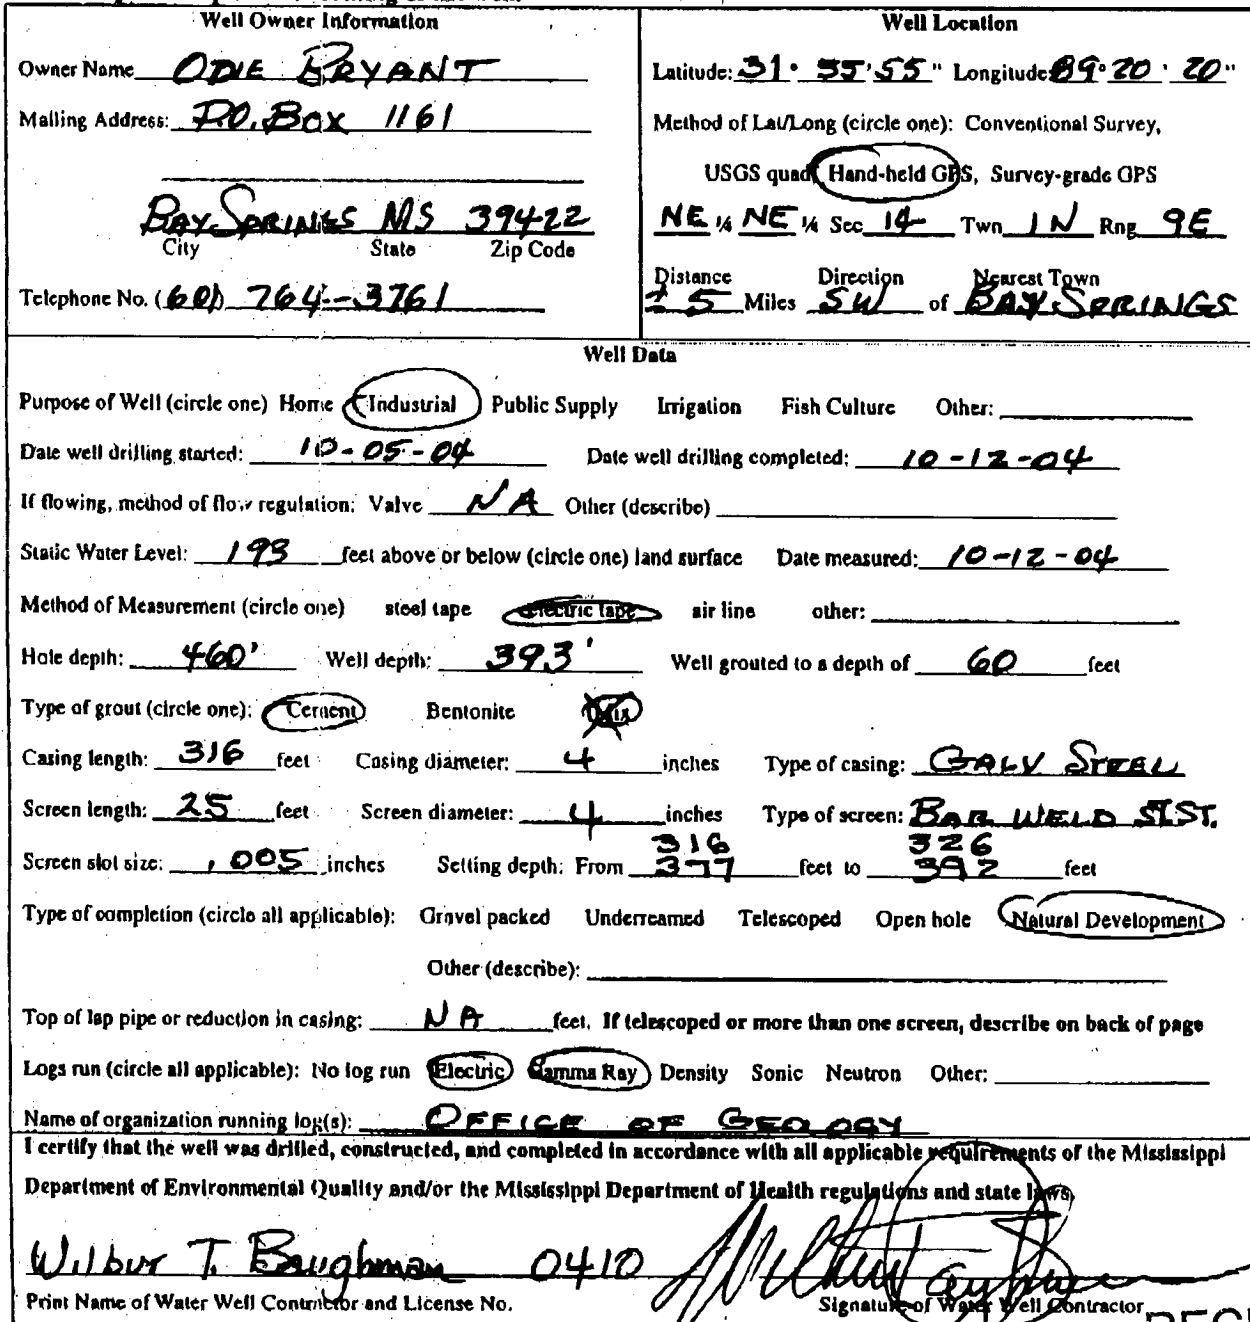 Well Owner Information
Owner Name ODIE BRYANT
Mailing Address: P.O. BOX 1161
BAY SPRINGS MS 39422
City State Zip Code
Telephone No. (601) 764-3761
Well Location
Latitude: 31° 55' 55" Longitude: 89° 20' 20"
Method of Lat/Long (circle one): Conventional Survey,
USGS quad, Hand-held GPS, Survey-grade GPS
NE ¼ NE ¼ Sec 14 Twn 1N Rng 9E
Distance Direction Nearest Town
± 5 Miles SW of BAY SPRINGS
Well Data
Purpose of Well (circle one) Home Industrial Public Supply Irrigation Fish Culture Other:
Date well drilling started: 10-05-04 Date well drilling completed: 10-12-04
If flowing, method of flow regulation: Valve NA Other (describe)
Static Water Level: 193 feet above or below (circle one) land surface Date measured: 10-12-04
Method of Measurement (circle one) steel tape electric tape air line other:
Hole depth: 460' Well depth: 393' Well grouted to a depth of 60 feet
Type of grout (circle one): Cement Bentonite Mix
Casing length: 316 feet Casing diameter: 4 inches Type of casing: GALV STEEL
Screen length: 25 feet Screen diameter: 4 inches Type of screen: BAR WELD ST.ST.
316 326
Screen slot size: .005 inches Setting depth: From 377 feet to 392 feet
Type of completion (circle all applicable): Gravel packed Underreamed Telescoped Open hole Natural Development
Other (describe):
Top of lap pipe or reduction in casing: NA feet. If telescoped or more than one screen, describe on back of page
Logs run (circle all applicable): No log run Electric Gamma Ray Density Sonic Neutron Other:
Name of organization running log(s): OFFICE OF GEOLOGY
I certify that the well was drilled, constructed, and completed in accordance with all applicable requirements of the Mississippi
Department of Environmental Quality and/or the Mississippi Department of Health regulations and state laws.
Wilbur T. Baughman 0410
Print Name of Water Well Contractor and License No.
Signature of Water Well Contractor